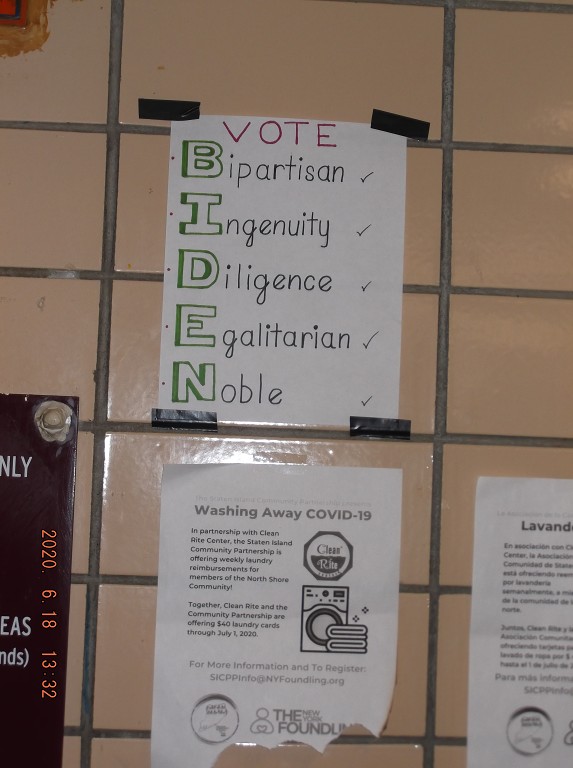 VOTE
Bipartisan ✓
Ingenuity ✓
Diligence ✓
Egalitarian ✓
Noble ✓
NLY
EAS
nds)
2020 6 18 13:32
Washing Away COVID-19
In partnership with Clean
Rite Center, the Staten Island
Community Partnership is
offering weekly laundry
reimbursements for
members of the North Shore
Community!
Together, Clean Rite and the
Community Partnership are
offering $40 laundry cards
through July 1, 2020.
Clean
Rite
For More Information and To Register:
SICPPInfo@NYFoundling.org
THE NEW YORK
FOUNDLIN
Lavande
En asociación con Cl
Center, la Asociación
Comunidad de State
está ofreciendo reem
por lavandería
semanalmente, a mie
de la comunidad de
norte.
Juntos, Clean Rite y la
Asociación Comunita
ofreciendo tarjetas pa
lavado de ropa por $
hasta el 1 de julio de
Para más informa
SICPPInfo@